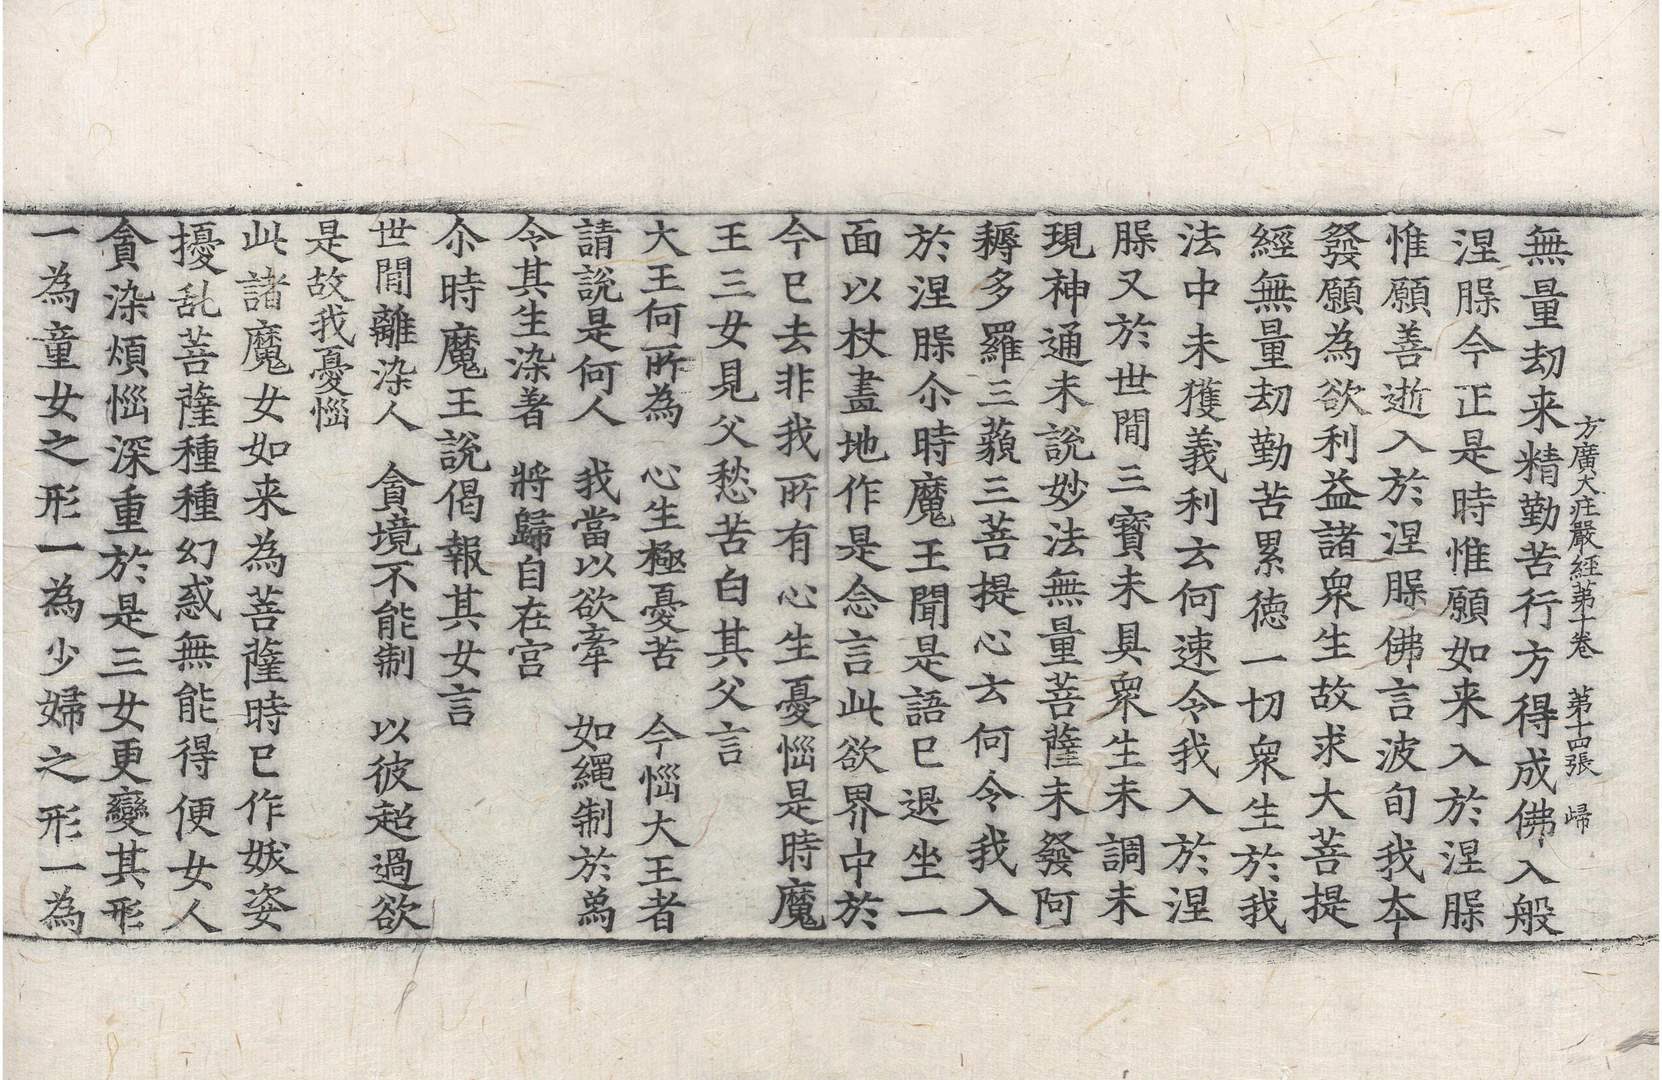 方廣大庄嚴經苐十卷 苐十四張 㱕
無量劫来精勤苦行方得成佛入般
涅槃今正是時惟願如来入於涅槃
惟願善逝入於涅槃佛言波旬我夲
發願為欲利益諸衆生故求大菩提
經無量劫勤苦累徳一切衆生於我
法中未獲義利云何速令我入於涅
槃又於世閒三寶未具衆生未調未
現神通未說妙法無量菩薩未發阿
耨多羅三藐三菩提心云何令我入
於涅槃尒時魔王聞是語已退坐一
面以杖畫地作是念言此欲界中於
今已去非我所有心生憂惱是時魔
王三女見父愁苦白其父言
大王何所為 心生極憂苦 今惱大王者
請說是何人 我當以欲牽 如繩制於爲
令其生染著 將歸自在宫
尒時魔王說偈報其女言
世閒離染人 貪境不能制 以彼超過欲
是故我憂惱
此諸魔女如来為菩薩時已作妖姿
擾乱菩薩種種幻惑無能得便女人
貪染煩惱深重於是三女更變其形
一為童女之形一為少婦之形一為